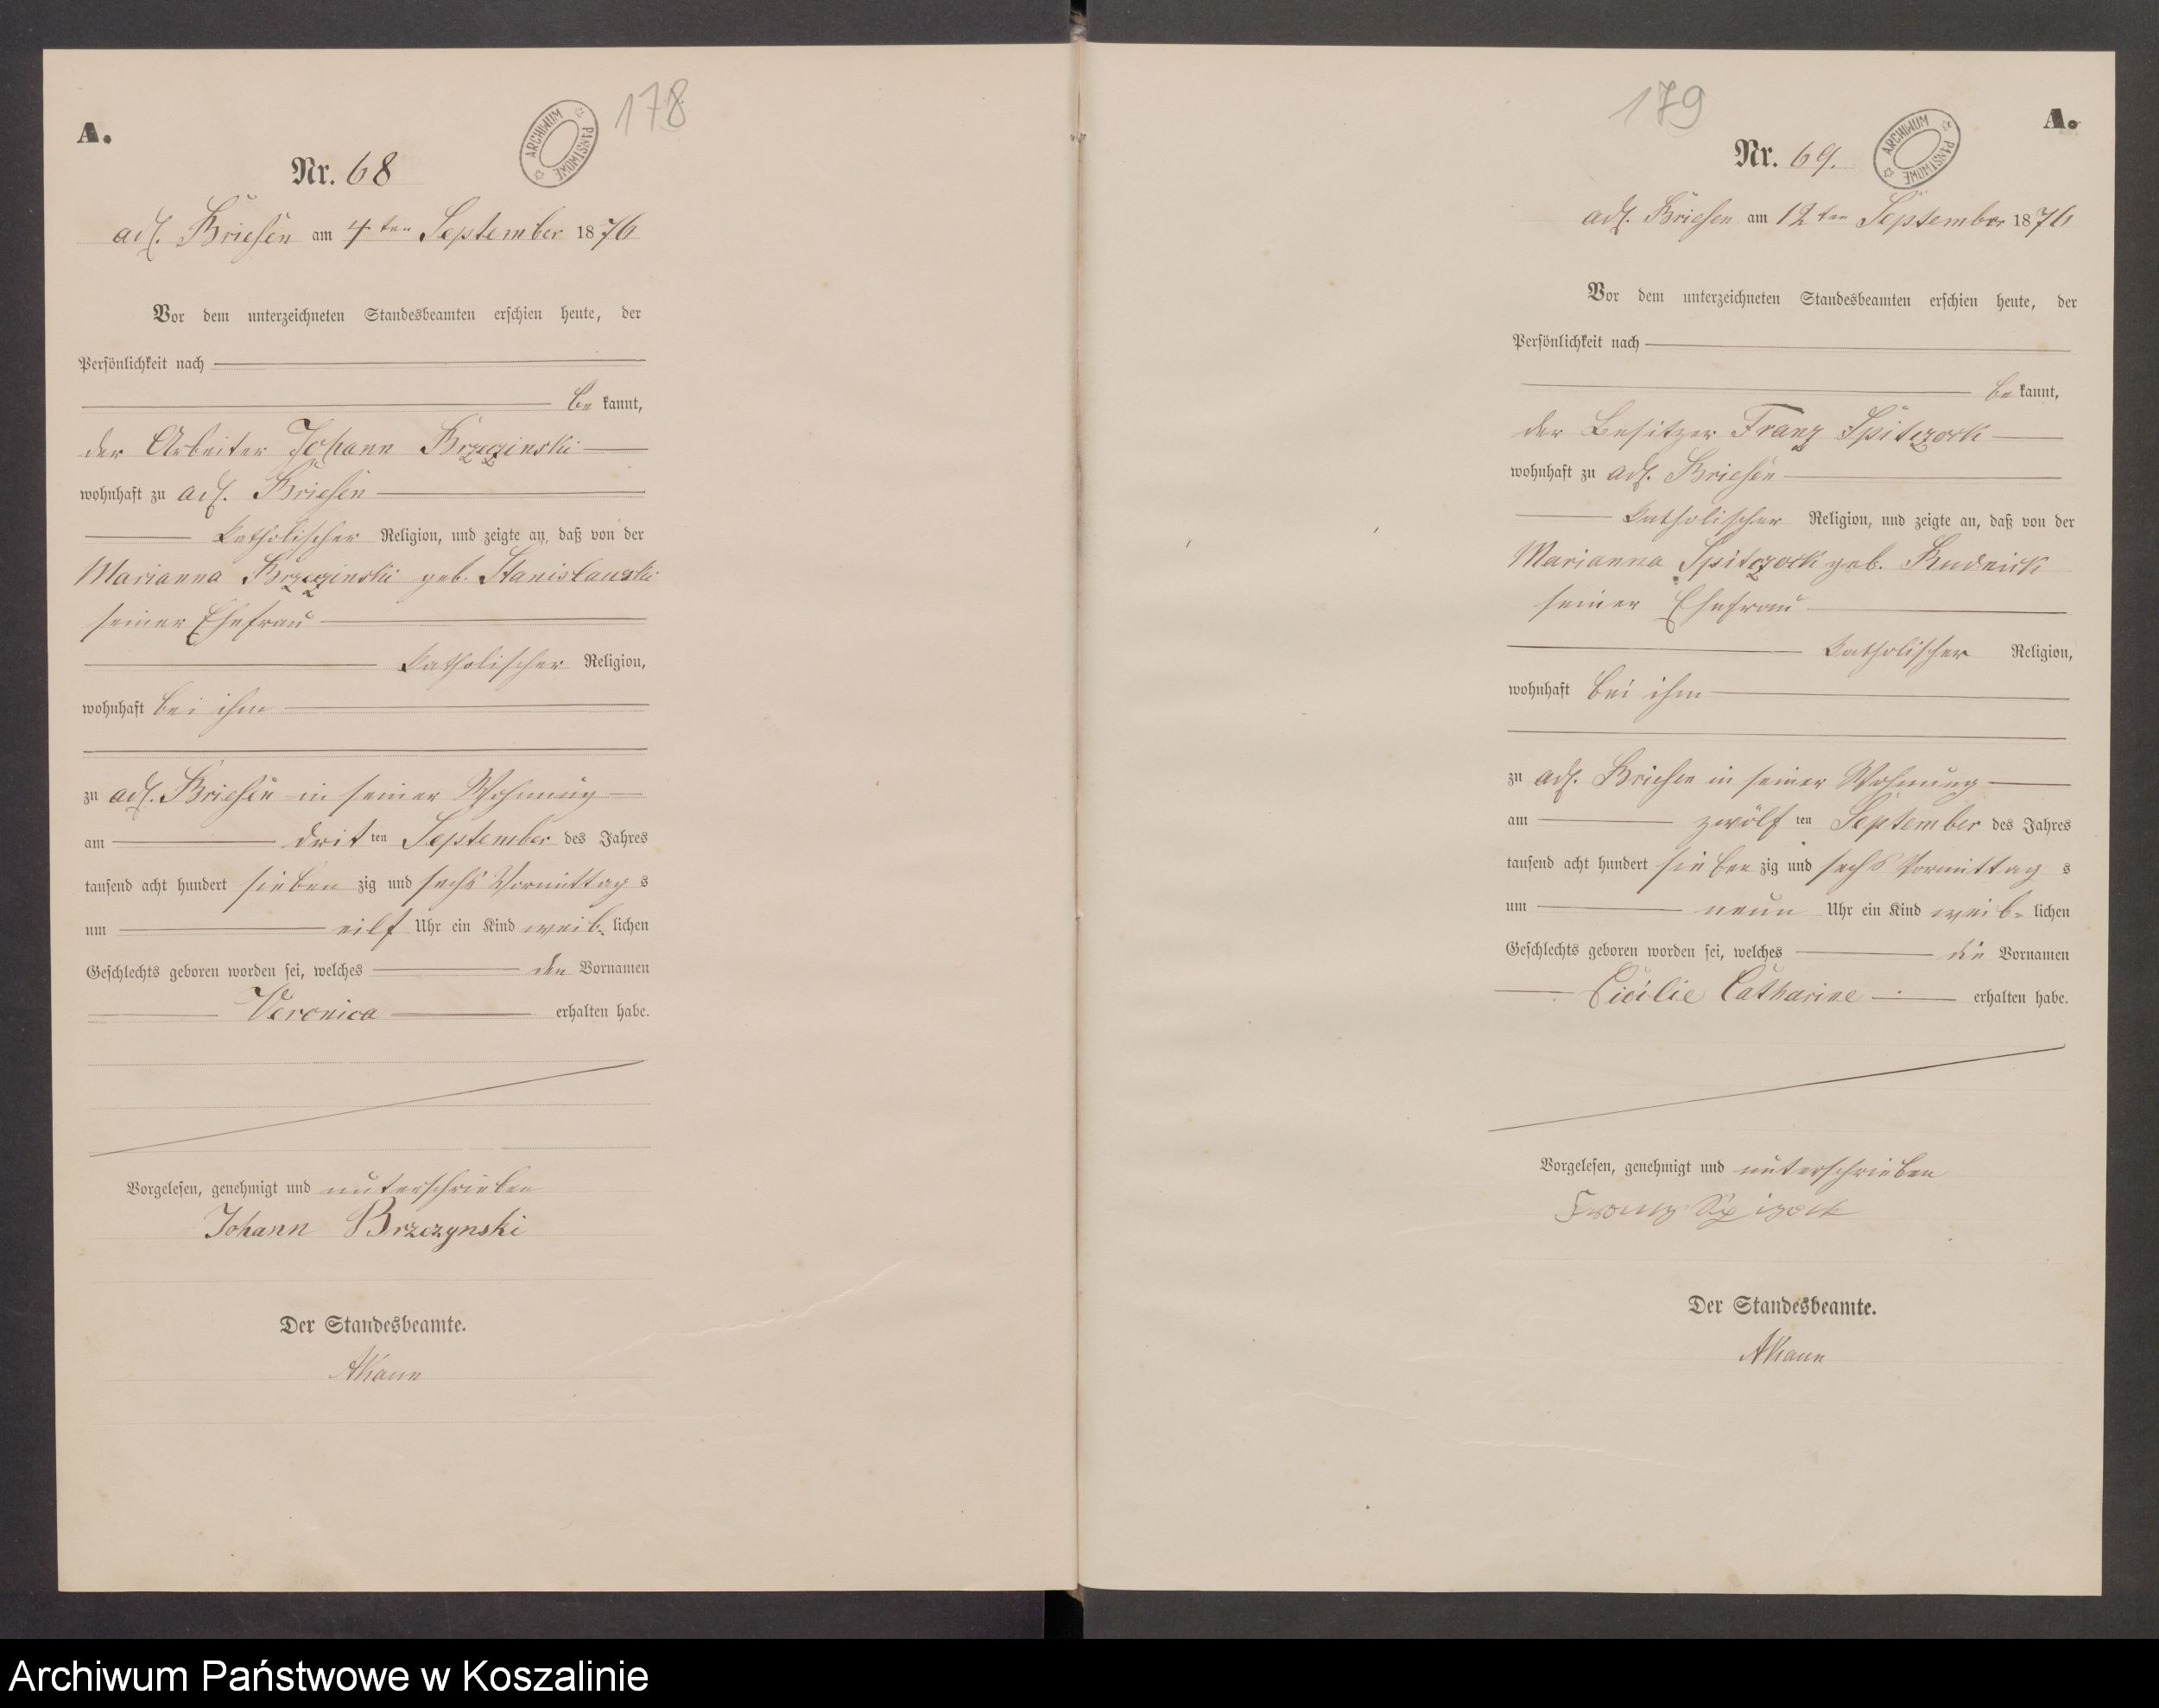 A.
178
ARCHIWUM PAŃSTWOWE
Nr. 68
adl. Briesen am 4ten September 1876
Vor dem unterzeichneten Standesbeamten erschien heute, der
Persönlichkeit nach
be kannt,
der Arbeiter Johann Brzezinski
wohnhaft zu adl. Briesen
katholischer Religion, und zeigte an, daß von der
Marianna Brzezinski geb. Stanislawski
seiner Ehefrau
katholischer Religion,
wohnhaft bei ihm
zu adl. Briesen in seiner Wohnung
am drit ten September des Jahres
tausend acht hundert sieben zig und sechs Vormittag s
um eilf Uhr ein Kind weib- lichen
Geschlechts geboren worden sei, welches den Vornamen
Veronica erhalten habe.
Vorgelesen, genehmigt und unterschrieben
Johann Brzezynski
Der Standesbeamte.
179
A.
ARCHIWUM PAŃSTWOWE
Nr. 69.
adl. Briesen am 12ten September 1876
Vor dem unterzeichneten Standesbeamten erschien heute, der
Persönlichkeit nach
be kannt,
der Besitzer Franz Spitczock
wohnhaft zu adl. Briesen
katholischer Religion, und zeigte an, daß von der
Marianna Spitczock geb. Rudnick
seiner Ehefrau
katholischer Religion,
wohnhaft bei ihm
zu adl. Briesen in seiner Wohnung
am zwölf ten September des Jahres
tausend acht hundert sieben zig und sechs Vormittag s
um neun Uhr ein Kind weib- lichen
Geschlechts geboren worden sei, welches die Vornamen
Cicilie Catharine erhalten habe.
Vorgelesen, genehmigt und unterschrieben
Der Standesbeamte.
Archiwum Państwowe w Koszalinie